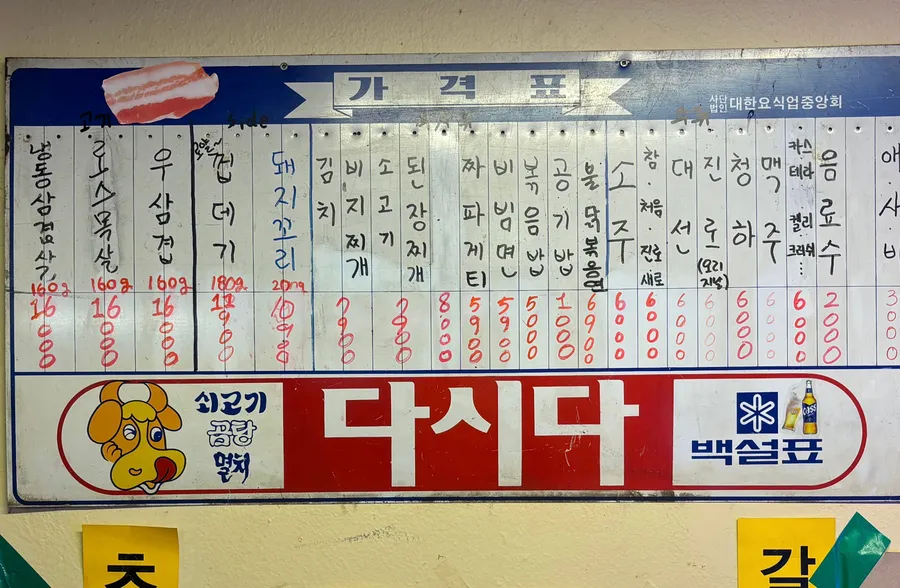 가격표
사단법인 대한요식업중앙회
고기
side
냉동삼겹살 160g 16000
로스목살 160g 16000
우삼겹 160g 16000
껍데기 180g
돼지꼬리 200g
김치
비지찌개 7900
소고기
된장찌개
8000
짜파게티 5900
비빔면 5900
볶음밥 5000
공기밥 1000
불닭볶음면 6900
소주 6000
참·처음·진로 새로 6000
대선 6000
진로 (오리지날) 6000
청하 6000
맥주 6000
카스 테라 켈리 크러쉬... 6000
음료수 2000
애사비 3000
쇠고기
곰탕
멸치
다시다
백설표
CASS
츠
갈